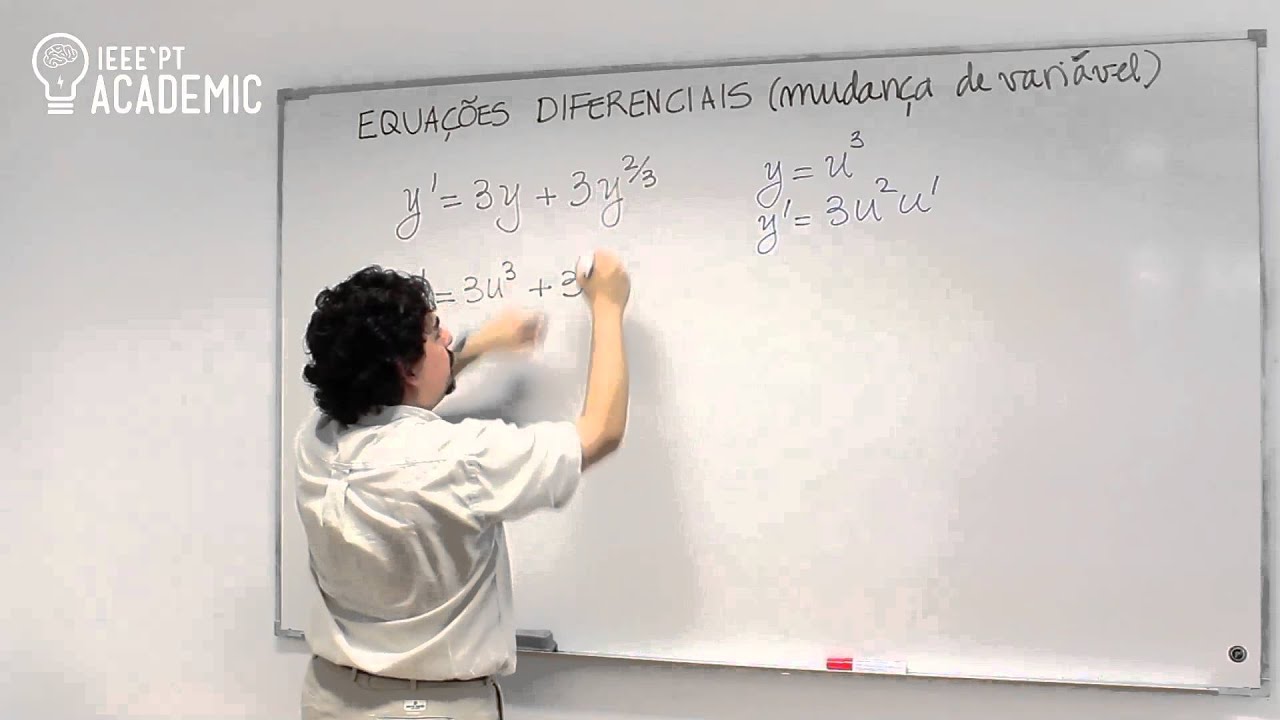 IEEE`PT
ACADEMIC
EQUAÇÕES DIFERENCIAIS (mudança de variável)
y' = 3y + 3y^2/3
y = u^3
y' = 3u^2 u'
' = 3u^3 + 3